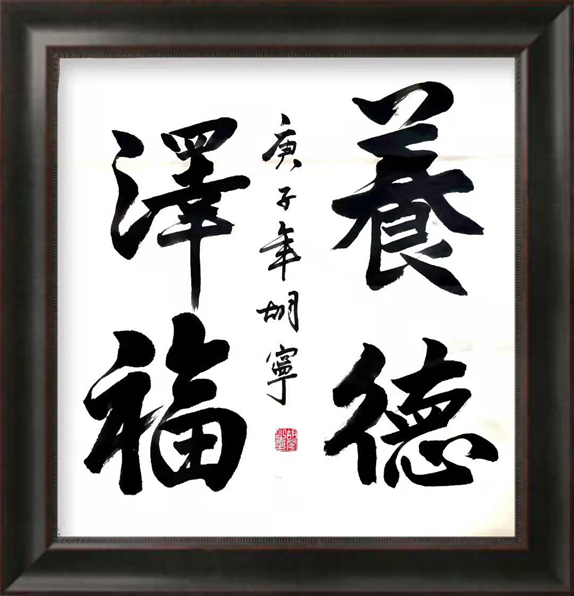 養德
澤福
庚子年胡寧